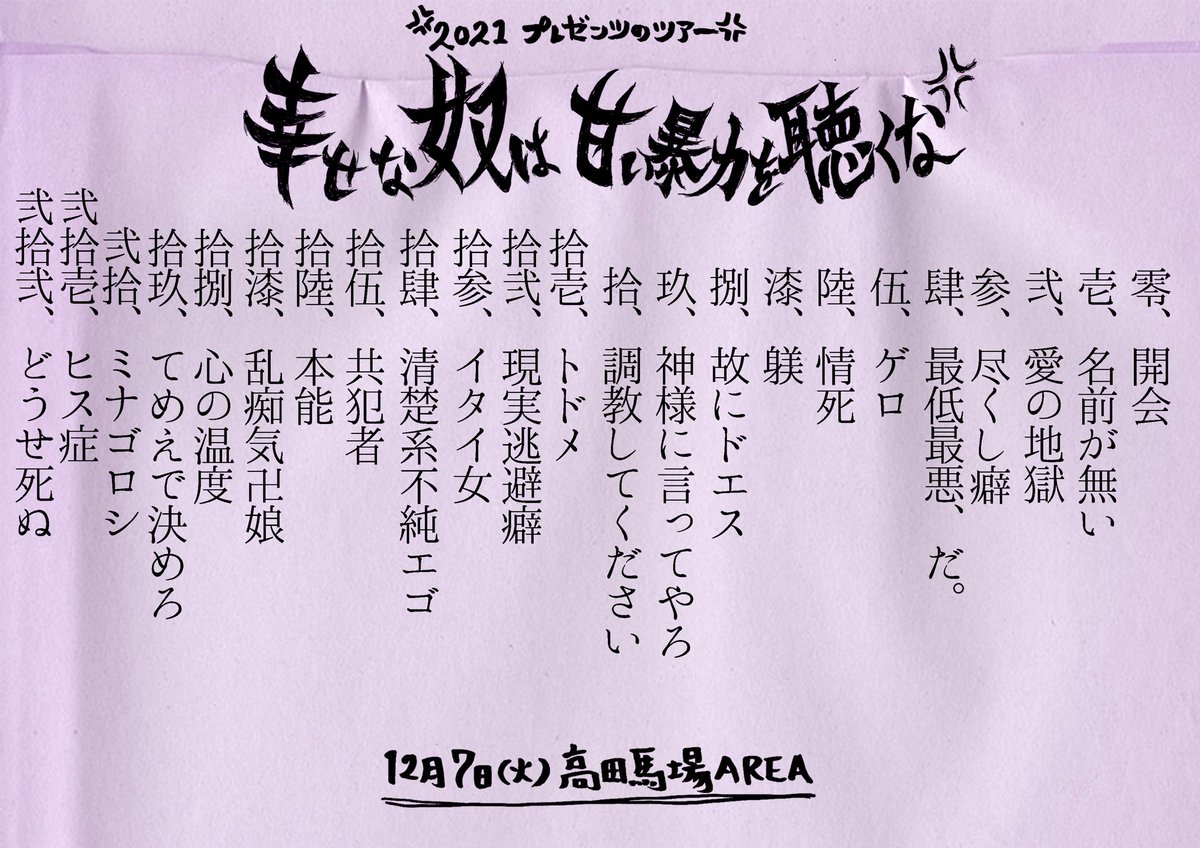 2021 プレゼンツのツアー
幸せな奴は甘い暴力を聴くな
零、開会
壱、名前が無い
弐、愛の地獄
参、尽くし癖
肆、最低最悪、だ。
伍、ゲロ
陸、情死
漆、躾
捌、故にドエス
玖、神様に言ってやろ
拾、調教してください
拾壱、トドメ
拾弐、現実逃避癖
拾参、イタイ女
拾肆、清楚系不純エゴ
拾伍、共犯者
拾陸、本能
拾漆、乱痴気卍娘
拾捌、心の温度
拾玖、てめえで決めろ
弐拾、ミナゴロシ
弐拾壱、ヒス症
弐拾弐、どうせ死ぬ
12月7日(火)高田馬場AREA